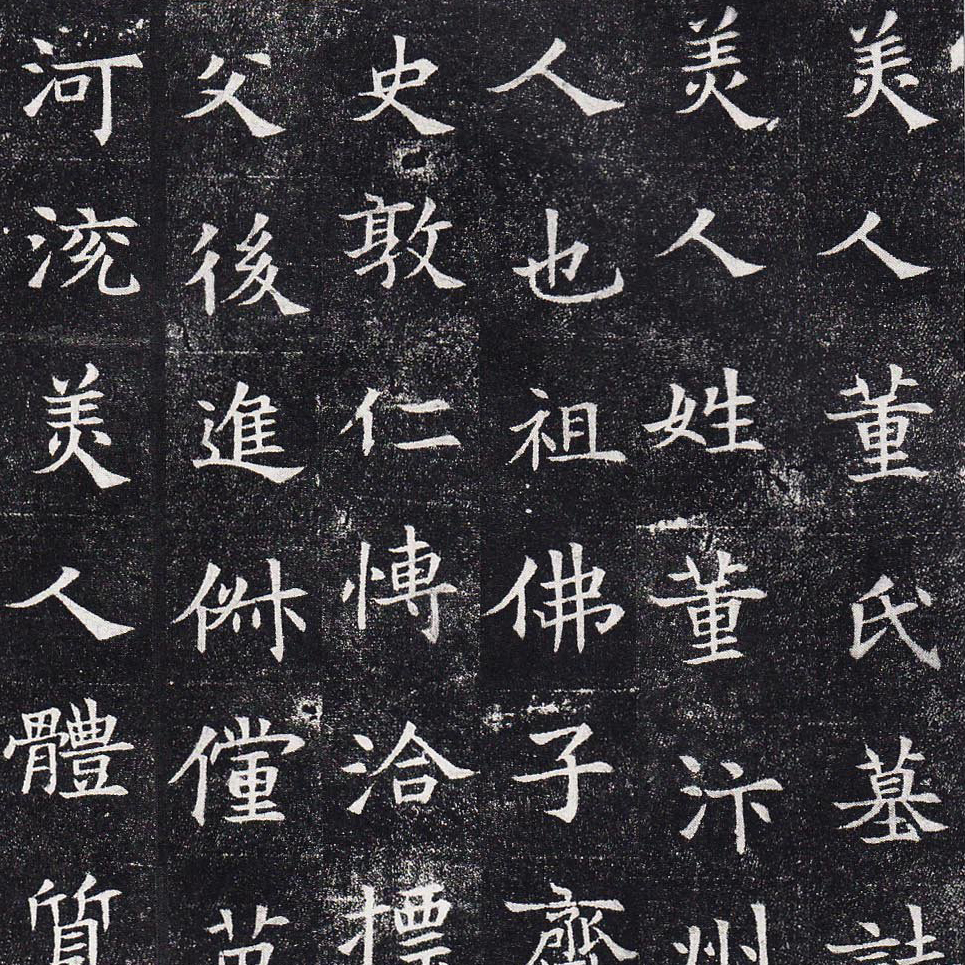 美人董氏墓誌
美人姓董汴州
人也祖佛子齊
史敦仁愽洽標
父後進俶儻英
河渷美人體質